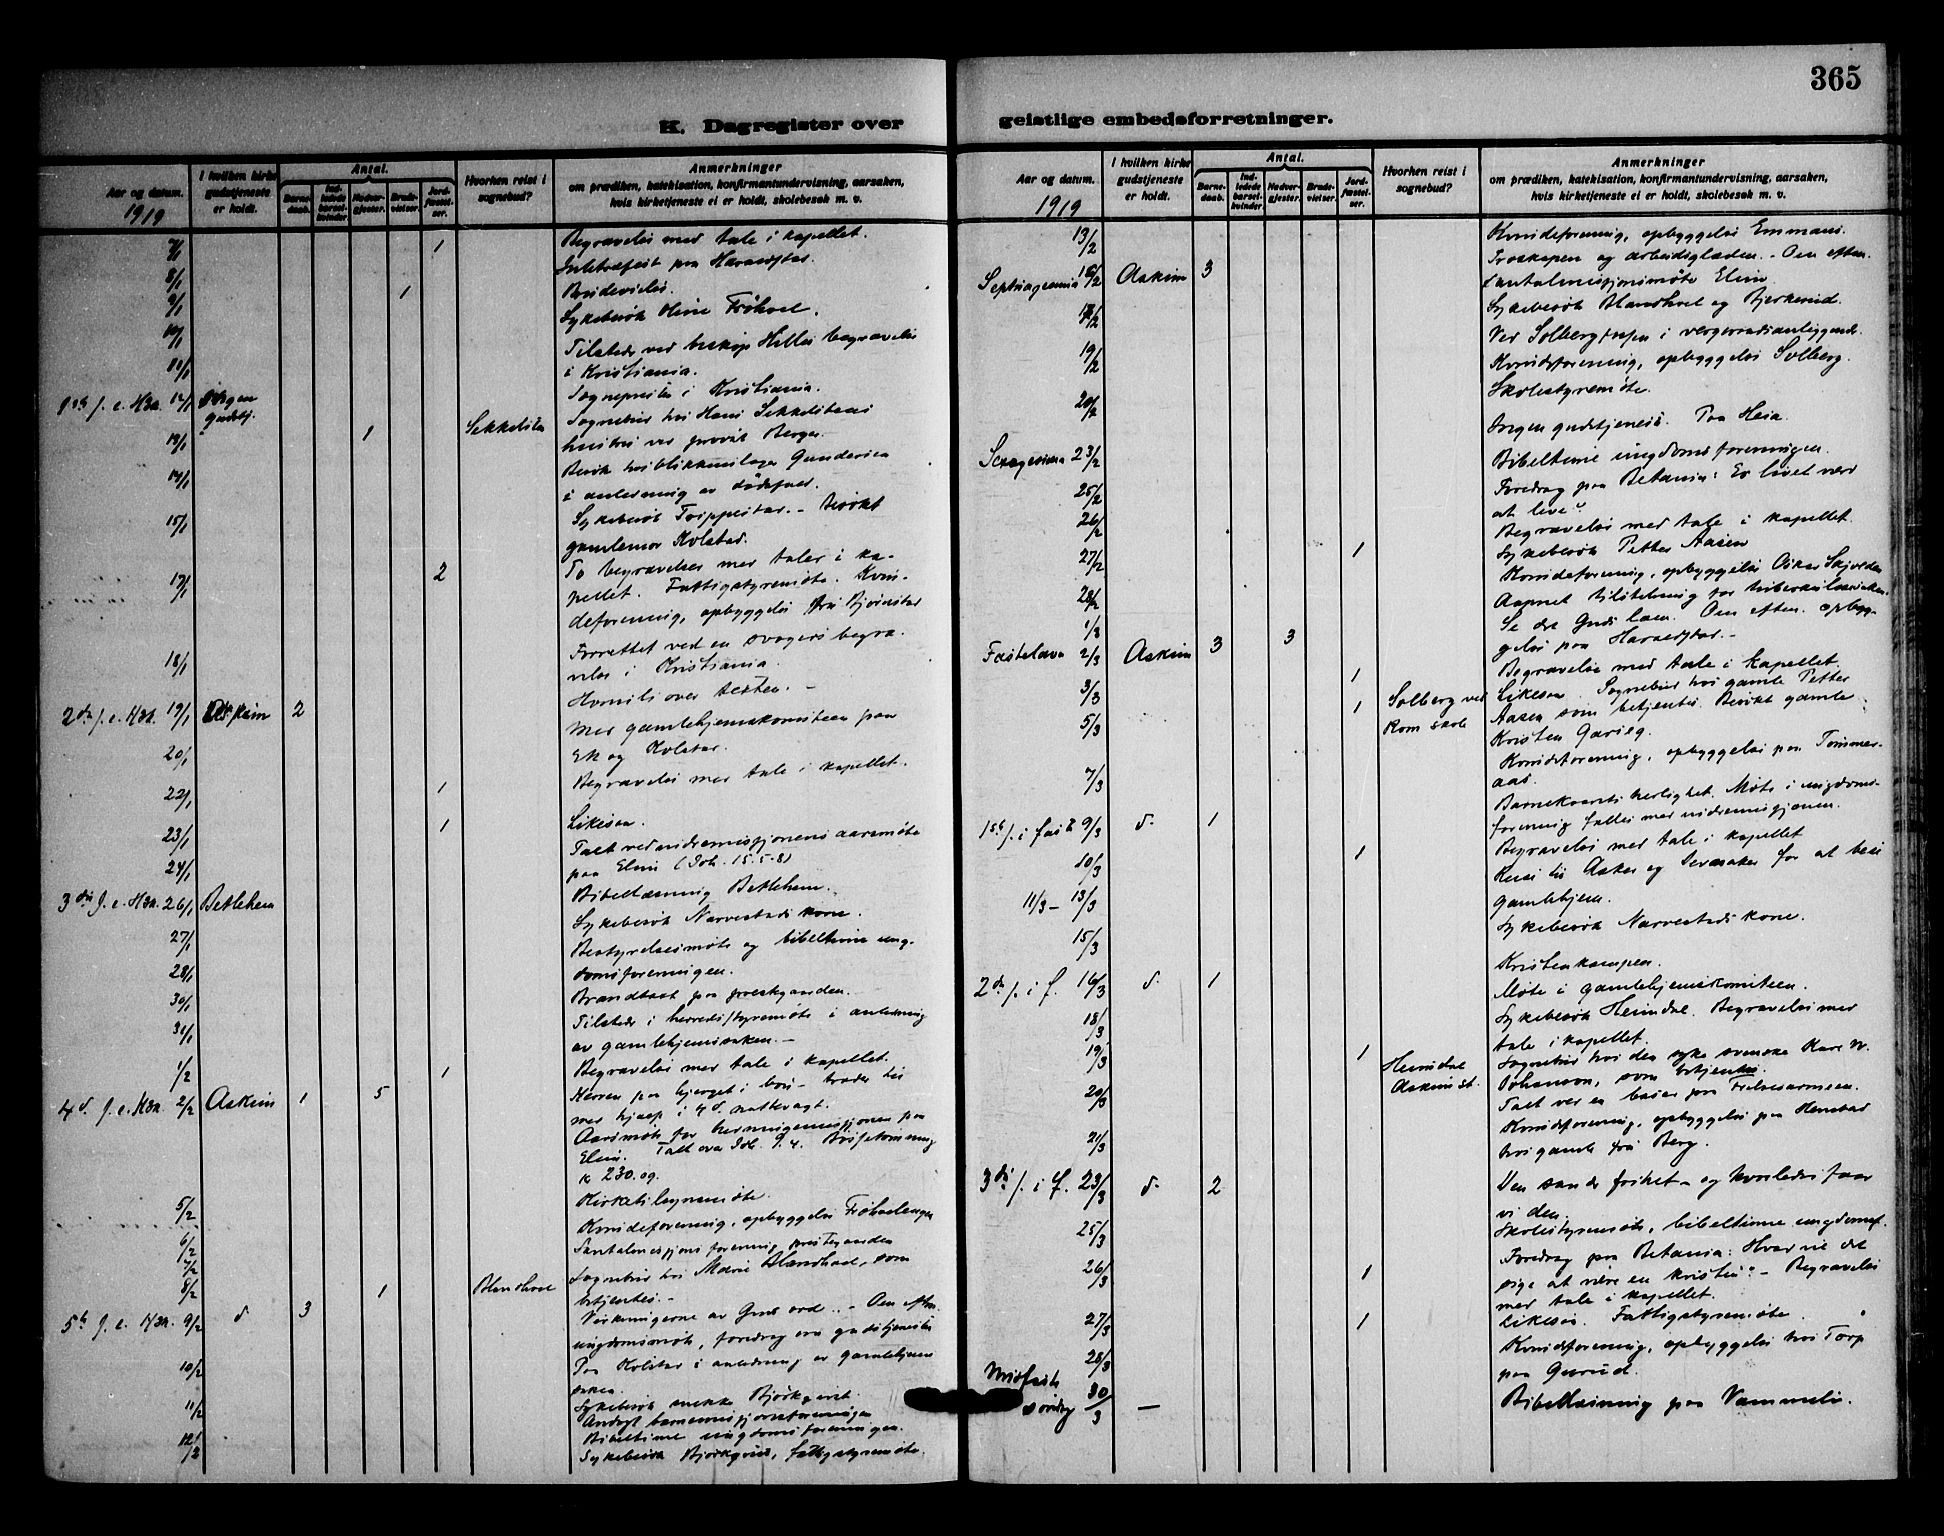 365
K. Dagregister over
geistlige embedsforretninger.
Aar og datum.
1919
I hvilken kirke gudstjeneste er holdt.
Antal.
Barnedaab.
Indledede barselkvinder
Nadvergjester.
Brudevielser.
Jordfæstelser.
Hvorhen reist i sognebud?
Anmerkninger
om prædiken, katekisation, konfirmantundervisning, aarsaken,
hvis kirketjeneste ei er holdt, skolebesøk m. v.
7/1 1 Begravelse med tale i kapellet.
Juletræfest paa
8/1 1 Brudevielse.
9/1 Sykebesøk
10/1 Tilstede ved biskop Hilles begravelse
11/1 i Kristiania.
1ste s. e. H3k. 12/1 Ingen gudstj. i Kristiania.
13/1 1 Sognebud hos Hans
hustru ved provst Berger.
14/1 Besøk hos blikkenslager Gundersen
i anledning av dødsfald.
15/1 Sykebesøk - besøkt
gamlemor Kolstad.
17/1 2 To begravelser med taler i ka-
pellet. Fattigstyremøte. Kvin-
deforening, opbyggelse fru Bjørnstad
18/1 Forrettet ved en svogers begra-
velse i Kristiania.
2den s. e. H3k. 19/1 Askim 2 over teksten. -
20/1 Med gamlehjemskomiteen paa
Ek og Kolstad.
22/1 1 Begravelse med tale i kapellet.
23/1 1 Likesaa.
24/1 Talt ved indremisjonens aarsmøte
paa Elim (Joh. 15. 5-8)
3die s. e. H3k. 26/1 Betlehem Bibellæsning Betlehem.
27/1 Sykebesøk Narvestads kone.
28/1 Bestyrelsesmøte og bibeltime ung-
domsforeningen.
30/1 Brandtakst paa prestegaarden.
31/1 Tilstede i herredsstyremøte i anledning
av gamlehjemssaken. -
1/2 1 Begravelse med tale i kapellet.
4d. s. e. H3k. 2/2 Askim 1 5 Herren paa bjerget i bøn - træder til
med hjælp i 4d. nattevagt.
Aarsmøte for hedningemisjonen paa
Elim. Talt over Joh. 9. 4.
kr 230.09.
5/2 Kirketilsynsmøte.
6/2 Kvindeforening, opbyggelse Frøhaugen
7/2 Santalmisjonsforening prestegaarden
8/2 1 Sognebud hos Marie som
betjentes. -
5te s. e. H3k. 9/2 d. 3 Virkningerne av Guds ord. - Om eftm.
ungdomsmøte, foredrag om gudstjenesten
10/2 Paa Kolstad i anledning av gamlehjem-
saken.
11/2 Sykebesøk enke
barnemisjonsforeningen
Bibeltime ungdomsforeningen.
12/2 Sykebesøk fattigstyremøte.
Aar og datum.
1919
I hvilken kirke gudstjeneste er holdt.
Antal.
Barnedaab.
Indledede barselkvinder
Nadvergjester.
Brudevielser.
Jordfæstelser.
Hvorhen reist i sognebud?
Anmerkninger
om prædiken, katekisation, konfirmantundervisning, aarsaken,
hvis kirketjeneste ei er holdt, skolebesøk m. v.
13/2 Kvindeforening, opbyggelse Emmaus.
Septuagesima 16/2 Askim 3 Troskapen og arbeidsglæden. - Om eftm.
Santalmisjonsmøte Elim
Sykebesøk og Bjerkerud.
Ved Solbergfossen i vergeraadsanliggende.
19/2 Kvindeforening, opbyggelse Solberg.
20/2 Skolestyremøte.
Sexagesima 23/2 Ingen gudstjeneste. Paa Heia.
25/2 Bibeltime ungdomsforeningen.
26/2 Foredrag paa Betania: Er livet værd
at leve?
27/2 1 Begravelse med tale i kapellet.
Sykebesøk Petter Aasen
28/2 Kvindeforening, opbyggelse Oskar
1/3 Aapnet tilstelning for tuberkulosesaken.
Fastelavn 2/3 Askim 3 3 Se det Guds lam. Om eftm. opbyg-
gelse paa
3/3 1 Begravelse med tale i kapellet.
5/3 1 Solberg ved Rom skole Likesaa. Sognebud hos gamle Petter
Aasen som betjentes. Besøkt gamle
Kristen
7/3 Kvindeforening, opbyggelse paa Tømmer-
aas.
1ste s. i faste 9/3 d. 1 Barnekaarets herlighet. Møte i ungdoms-
forening fælles med indremisjonen.
10/3 1 Begravelse med tale i kapellet
11/3 - 13/3 Reise til Asker og for at bese
gamlehjem.
15/3 Sykebesøk Narvestads kone.
2den s. i f. 16/3 d. 1 Kristenkampen.
18/3 Møte i gamlehjemskomiteen.
19/3 1 Sykebesøk Heimdal. Begravelse med
tale i kapellet.
Heimdal Askim st. Sognebud hos den syke svenske
Johanson, som betjentes.
20/3 Talt ved en basar paa Frelsesarmeen.
21/3 Kvindeforening, opbyggelse paa Henstad
hos gamle fru Berg.
3die s. i f. 23/3 d. 2 Den sande frihet - og hvorledes faar
vi den.
25/3 Skolestyremøte, bibeltime ungdomsf.
26/3 1 Foredrag paa Betania: Hvad vil det
sige at være en kristen? - Begravelse
med tale i kapellet.
27/3 1 Likesaa. Fattigstyremøte.
28/3 Kvindeforening, opbyggelse hos Torp
paa Gurud.
Midfaste søndag 30/3 — Bibellæsning paa Vammeli.